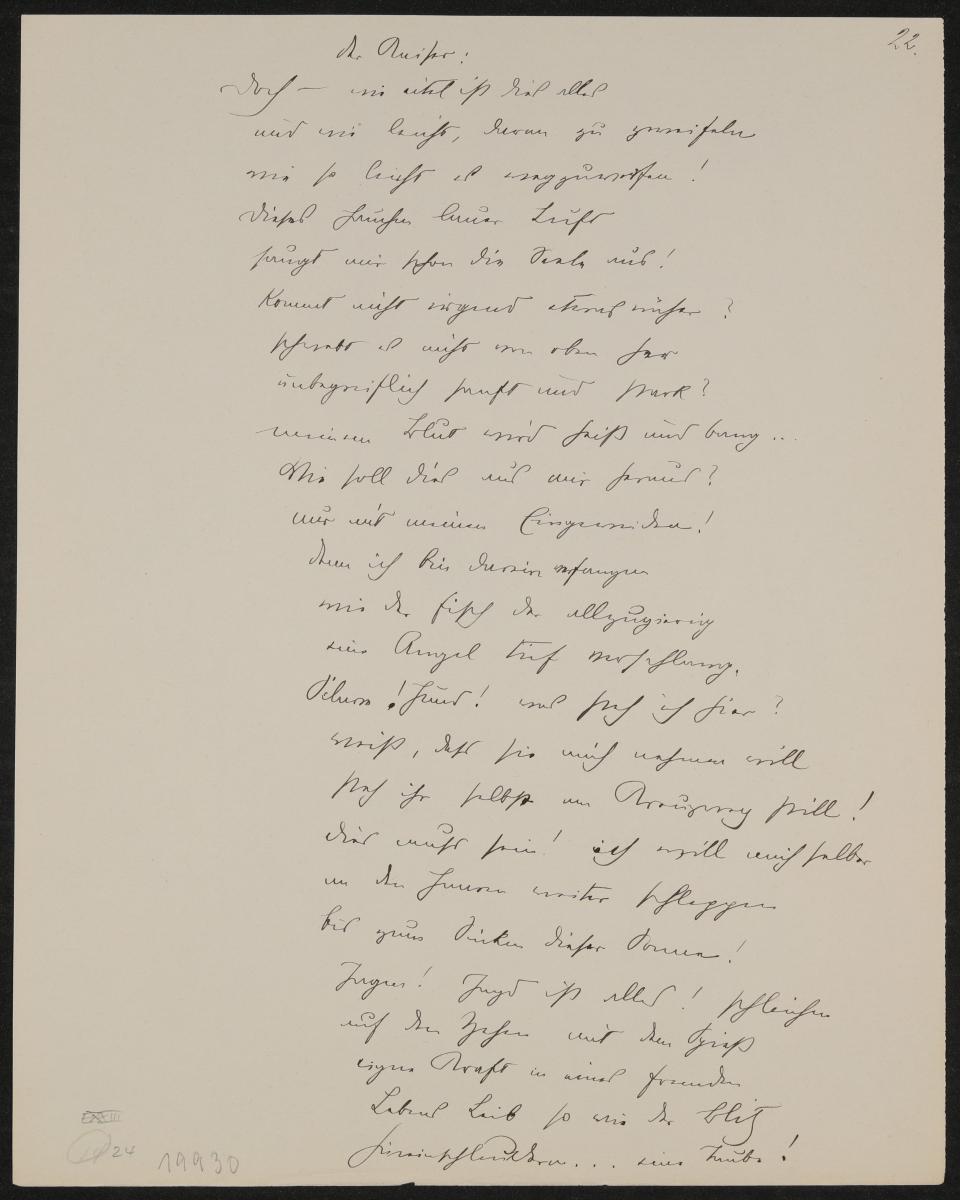 der Kaiser:
22.
Doch – wie eitel ist dies alles
und wie leicht, daran zu zweifeln
wie so leicht es wegzuwerfen!
Dieses Hauchen lauer Luft
saugt mir schon die Seele aus!
Kommt nicht irgend etwas näher?
schwebt es nicht von oben her
unbegreiflich sanft und stark?
meinem Blut wird heiß und bang...
Wie soll dies aus mir heraus?
nur mit meinen Eingeweiden!
denn ich bin darein verfangen
wie der Fisch der allzugierig
eine Angel tief verschlang.
Sclave! Hund! was steh ich hier?
weiß, dass sie mich nehmen will
steh ihr selbst am Kreuzweg still!
dies muss sein! ich will mich selber
an den Haaren weiter schleppen
bis zum Sinken dieser Sonne!
Jagen! Jagd ist alles! schleichen
auf den Zehen mit dem Spieß
eigne Kraft in eines fremden
Lebens Leib so wie der Blitz
hineinschleudern... eine Taube!
24
19930